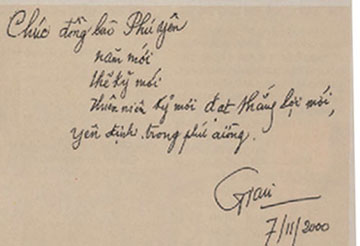 Chúc đồng bào Phú Yên
năm mới
thế kỷ mới
thiên niên kỷ mới đạt thắng lợi mới,
yên định trong phú cường.
Giàu
7/11/2000